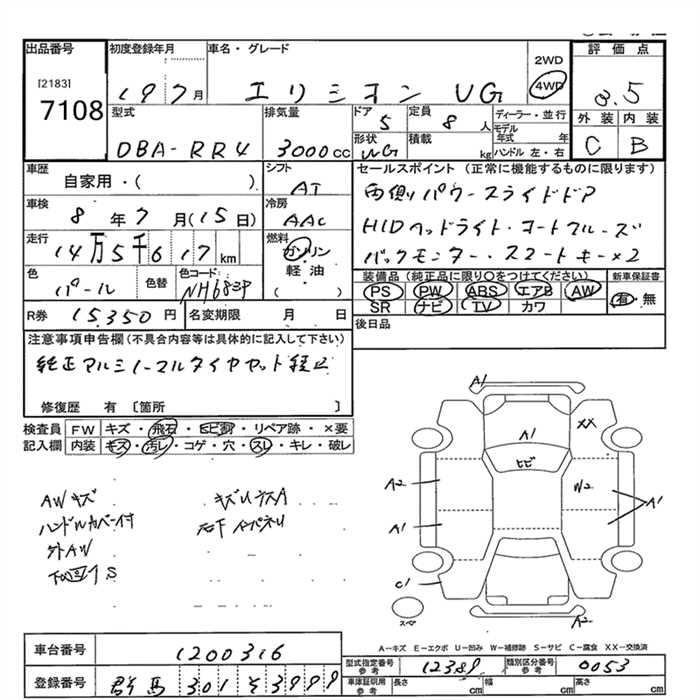 出品番号 初度登録年月 車名・グレード 2WD 評価点
[2183] 4WD
7108 19 7月 エリシオン VG 3.5
型式 排気量 ドア 5 定員 8人 ディーラー・並行 外装 内装
モデル年式 年
DBA-RR4 3000cc 形状 VG 積載 kg ハンドル 左・右 C B
車歴 シフト セールスポイント (正常に機能するものに限ります)
自家用・( ) AT 両側パワースライドドア
車検 冷房
8年7月(15日) AAC HIDヘッドライト・オートクルーズ
走行 燃料
14万5千617km ガソリン バックモニター・スマートキー×2
軽油
( )
色 色替 色コード 装備品 (純正品に限り〇をつけてください) 新車保証書
パール PS PW ABS エアB AW 有・無
SR ナビ TV カワ
R券 15,350円 名変期限 月 日 後日品
注意事項申告欄(不具合内容等は具体的に記入して下さい)
純正アルミノーマルタイヤセット積込
修復歴 有〔箇所 〕
検査員 FW キズ・飛石・ヒビ割・リペア跡・×要
記入欄 内装 キズ・汚レ・コゲ・穴・スレ・キレ・破レ
A1
XX
A1
ヒビ
A2 W2
A1
A1
AWキズ
ハンドルカバー付
外AW
下廻りS
C1
スペア
A2
A－キズ E－エクボ U－凹み W－補修跡 S－サビ C－腐食 XX－交換済
車台番号 1200316 型式指定番号 参考 12389 類別区分番号 参考 0053
登録番号 群馬 301 そ3999 車体証明用 参考 長さ cm 幅 cm 高さ cm